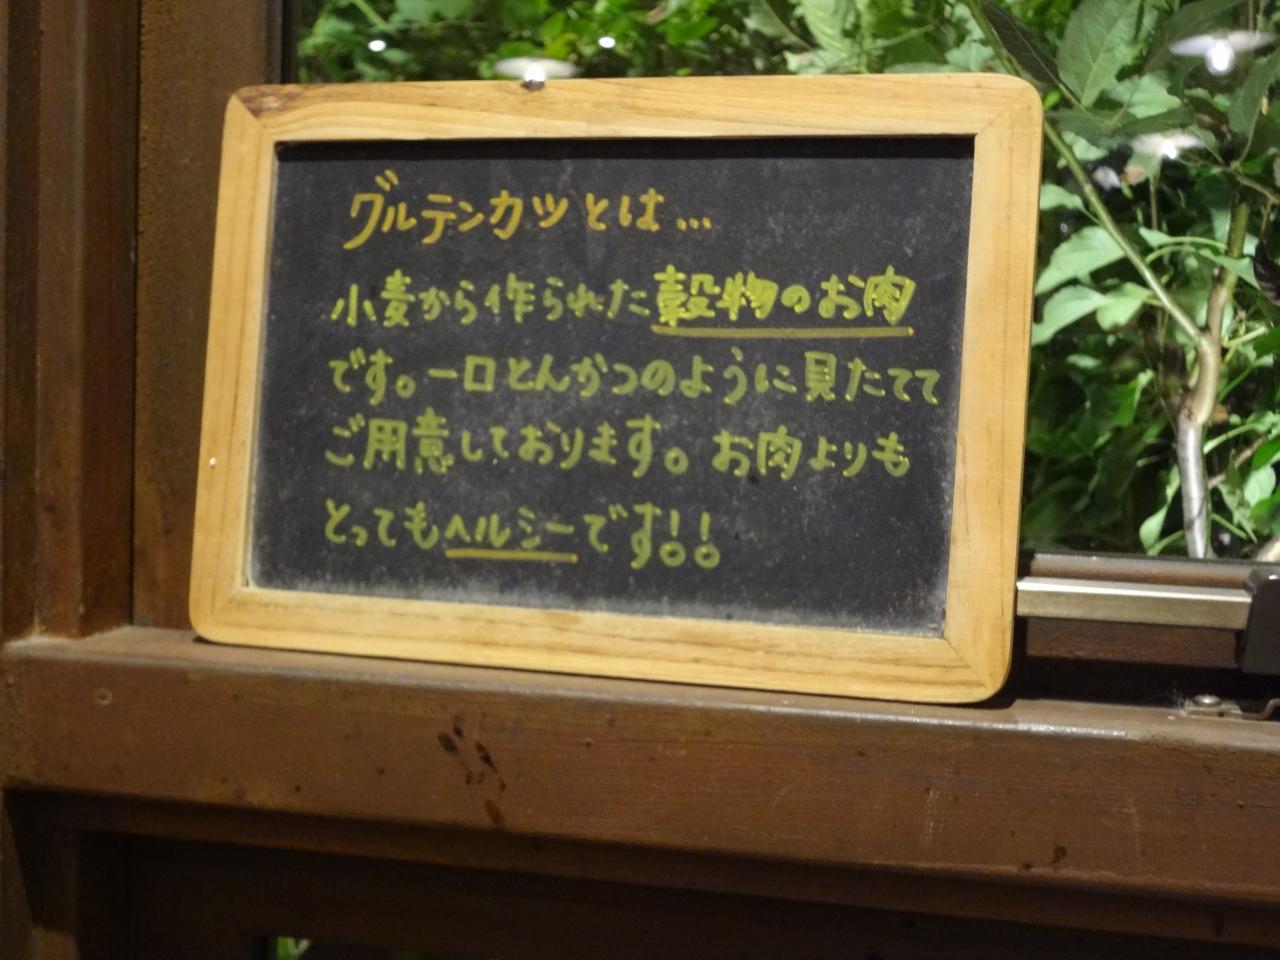 グルテンカツとは...
小麦から作られた穀物のお肉
です。一口とんかつのように見たてて
ご用意しております。お肉よりも
とってもヘルシーです!!